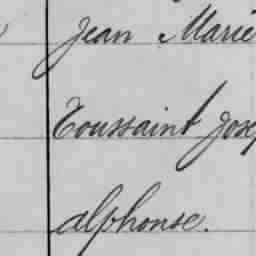 Jean Marie
Toussaint Jose
alphonse.